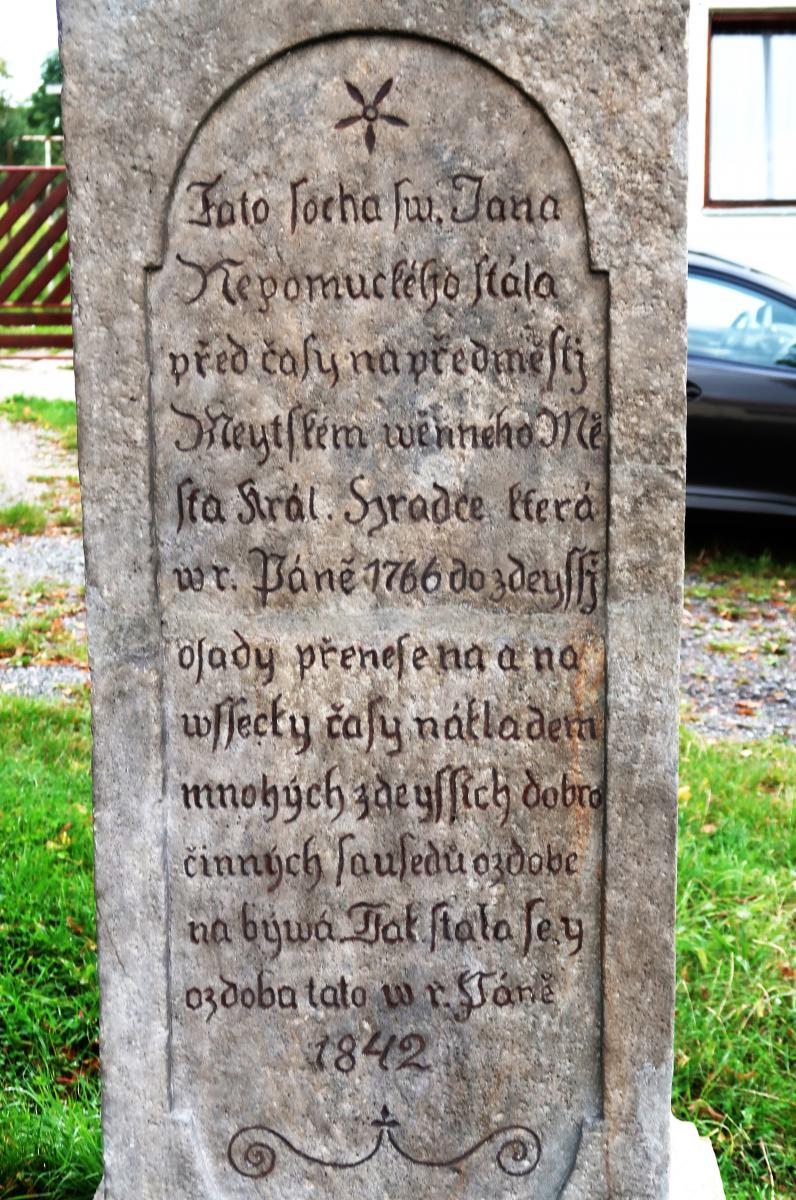 Tato socha sw. Jana
Nepomuckého stála
před časy na předměstj
Meytském wěnného Mě
sta Král. Hradce která
w r. Páně 1766 do zdeyssj
osady přenesena a na
wssecky časy nákladem
mnohých zdeyssich dobro
činných sausedů ozdobe
na býwá. Tak stala se y
ozdoba tato w r. Páně
1842